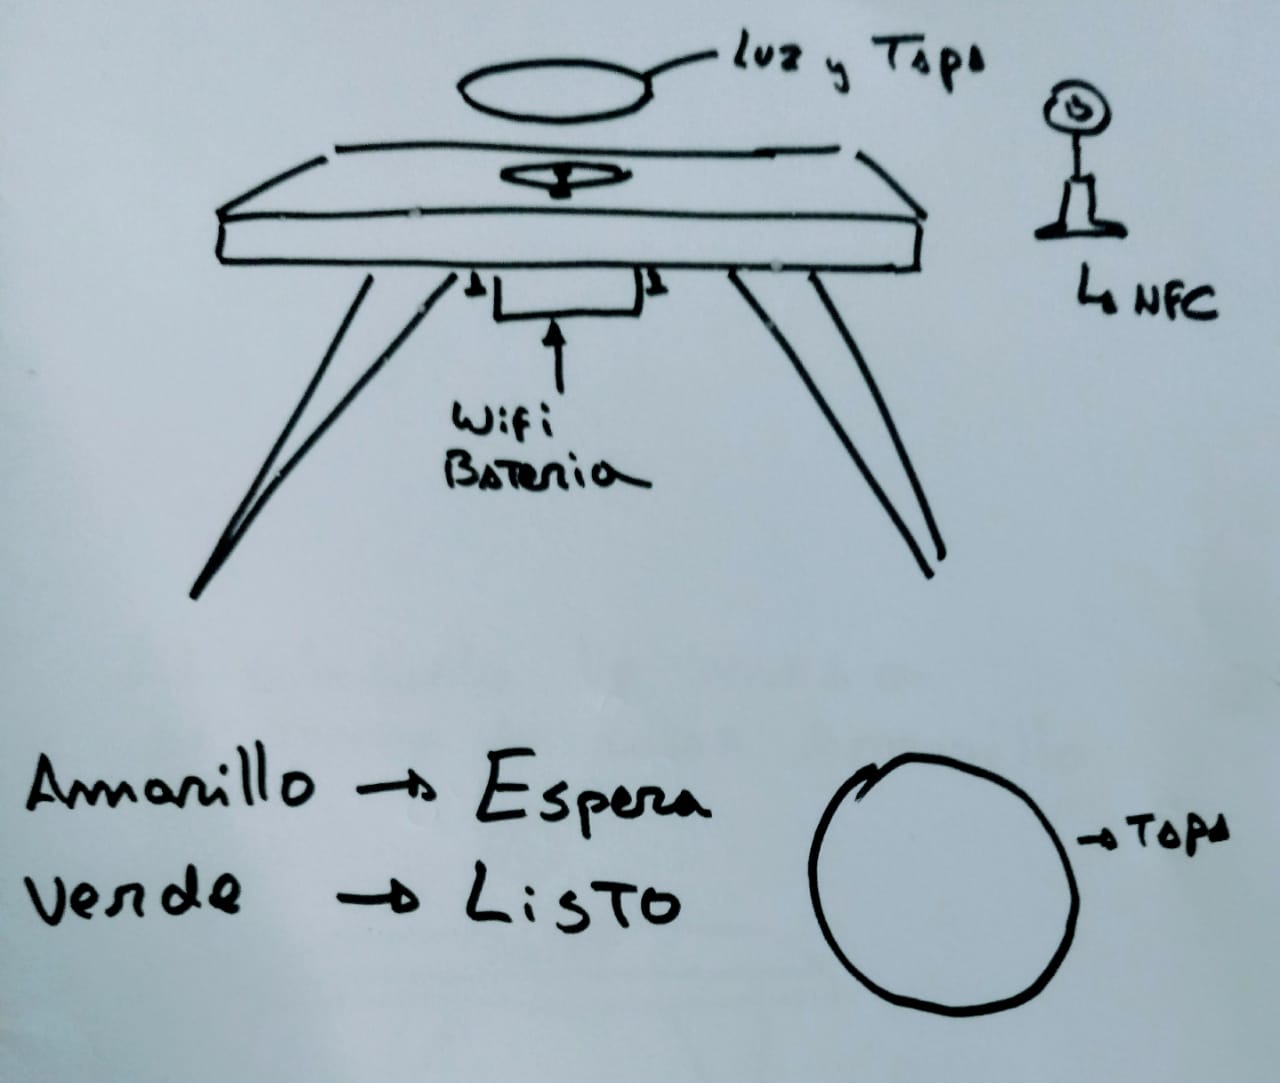 Luz y Tapa
B
↳ NFC
Wifi
Bateria
Amarillo → Espera
→ Tapa
Verde → Listo